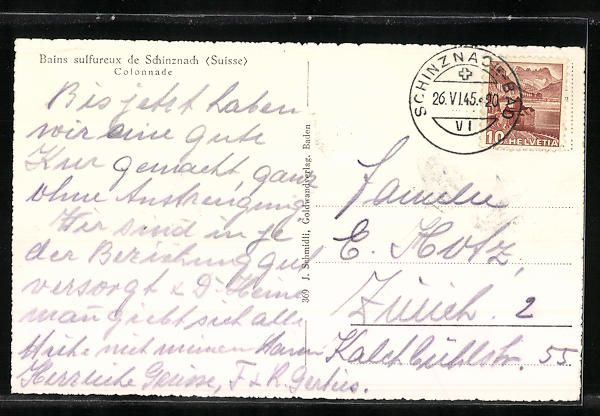 Bains sulfureux de Schinznach (Suisse)
Colonnade
Bis jetzt haben
wir eine gute
Kur gemacht, ganz
ohne Anstrengung
Wir sind in je
der Beziehung gut
versorgt &
man giebt sich alle
Mühe mit meinem
Herzliche Grüsse, F & R.
369 J. Schmidli, Goldwandverlag, Baden
SCHINZNACH-BAD
26.VI.45.-20
VI
10 HELVETIA
Familie
E. Hotz,
Zürich. 2
Kalchbühlstr. 55